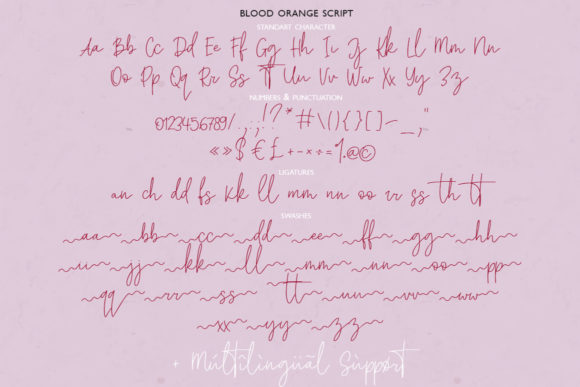 BLOOD ORANGE SCRIPT
STANDART CHARACTER
Aa Bb Cc Dd Ee Ff Gg Hh Ii Jj Kk Ll Mm Nn
Oo Pp Qq Rr Ss Tt Uu Vv Ww Xx Yy Zz
NUMBERS & PUNCTUATION
0123456789/.,:;..!?*#\(){}[]-_,"
«»$€£+-×÷=%.@©
LIGATURES
an ch dd fs kk ll mm nn oo rr ss th tt
SWASHES
aa bb cc dd ee ff gg hh
ii jj kk ll mm nn oo pp
qq rr ss tt uu vv ww
xx yy zz
+ Múltîlingüãl Sùpport